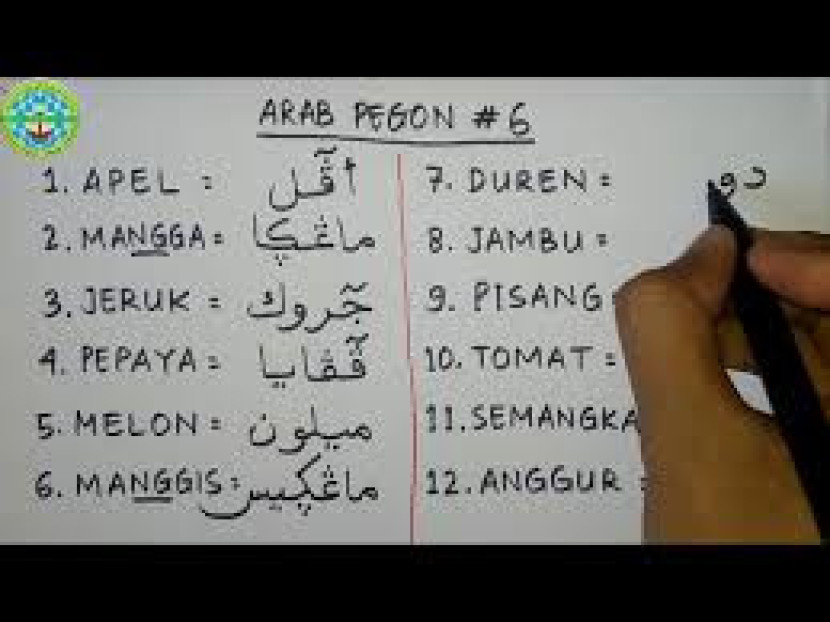 ARAB PEGON #6
1. APEL = أڤـٓل
2. MANGGA = ماڠݢا
3. JERUK = جٓروك
4. PEPAYA = ڤٓڤايا
5. MELON = ميلون
6. MANGGIS = ماڠݢيس
7. DUREN = دو
8. JAMBU =
9. PISANG
10. TOMAT =
11. SEMANGKA
12. ANGGUR =